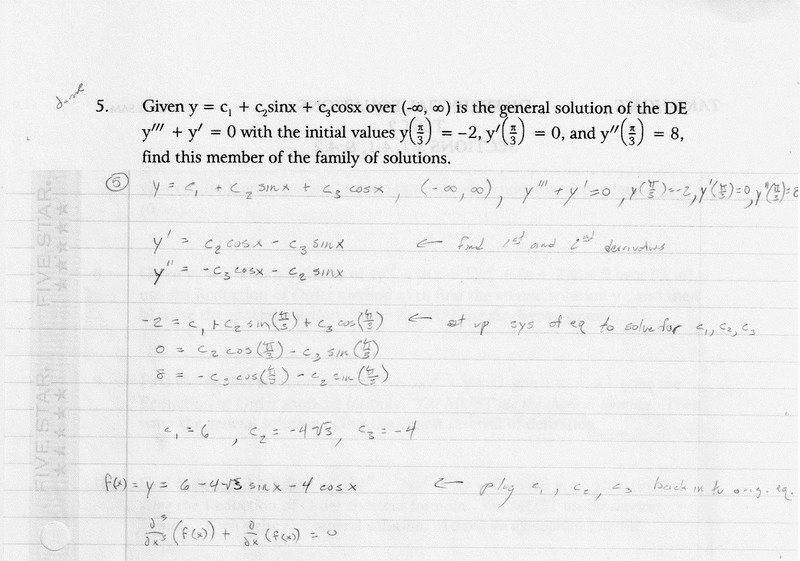 5. Given y = c₁ + c₂sinx + c₃cosx over (-∞, ∞) is the general solution of the DE
y‴ + y′ = 0 with the initial values y(π/3) = -2, y′(π/3) = 0, and y″(π/3) = 8,
find this member of the family of solutions.
⑤ y = c₁ + c₂ sinx + c₃ cosx, (-∞, ∞), y''' + y' = 0, y(π/3)=-2, y'(π/3)=0, y''(π/3)=8
y' = c₂ cosx - c₃ sinx ← find 1st and 2nd derivatives
y'' = -c₃ cosx - c₂ sinx
-2 = c₁ + c₂ sin(π/3) + c₃ cos(π/3) ← set up sys of eq to solve for c₁, c₂, c₃
0 = c₂ cos(π/3) - c₃ sin(π/3)
8 = -c₃ cos(π/3) - c₂ sin(π/3)
c₁ = 6, c₂ = -4√3, c₃ = -4
f(x) = y = 6 - 4√3 sinx - 4 cosx ← plug c₁, c₂, c₃ back in to orig. eq.
∂³/∂x³ (f(x)) + ∂/∂x (f(x)) = 0
FIVE STAR.
FIVE STAR.